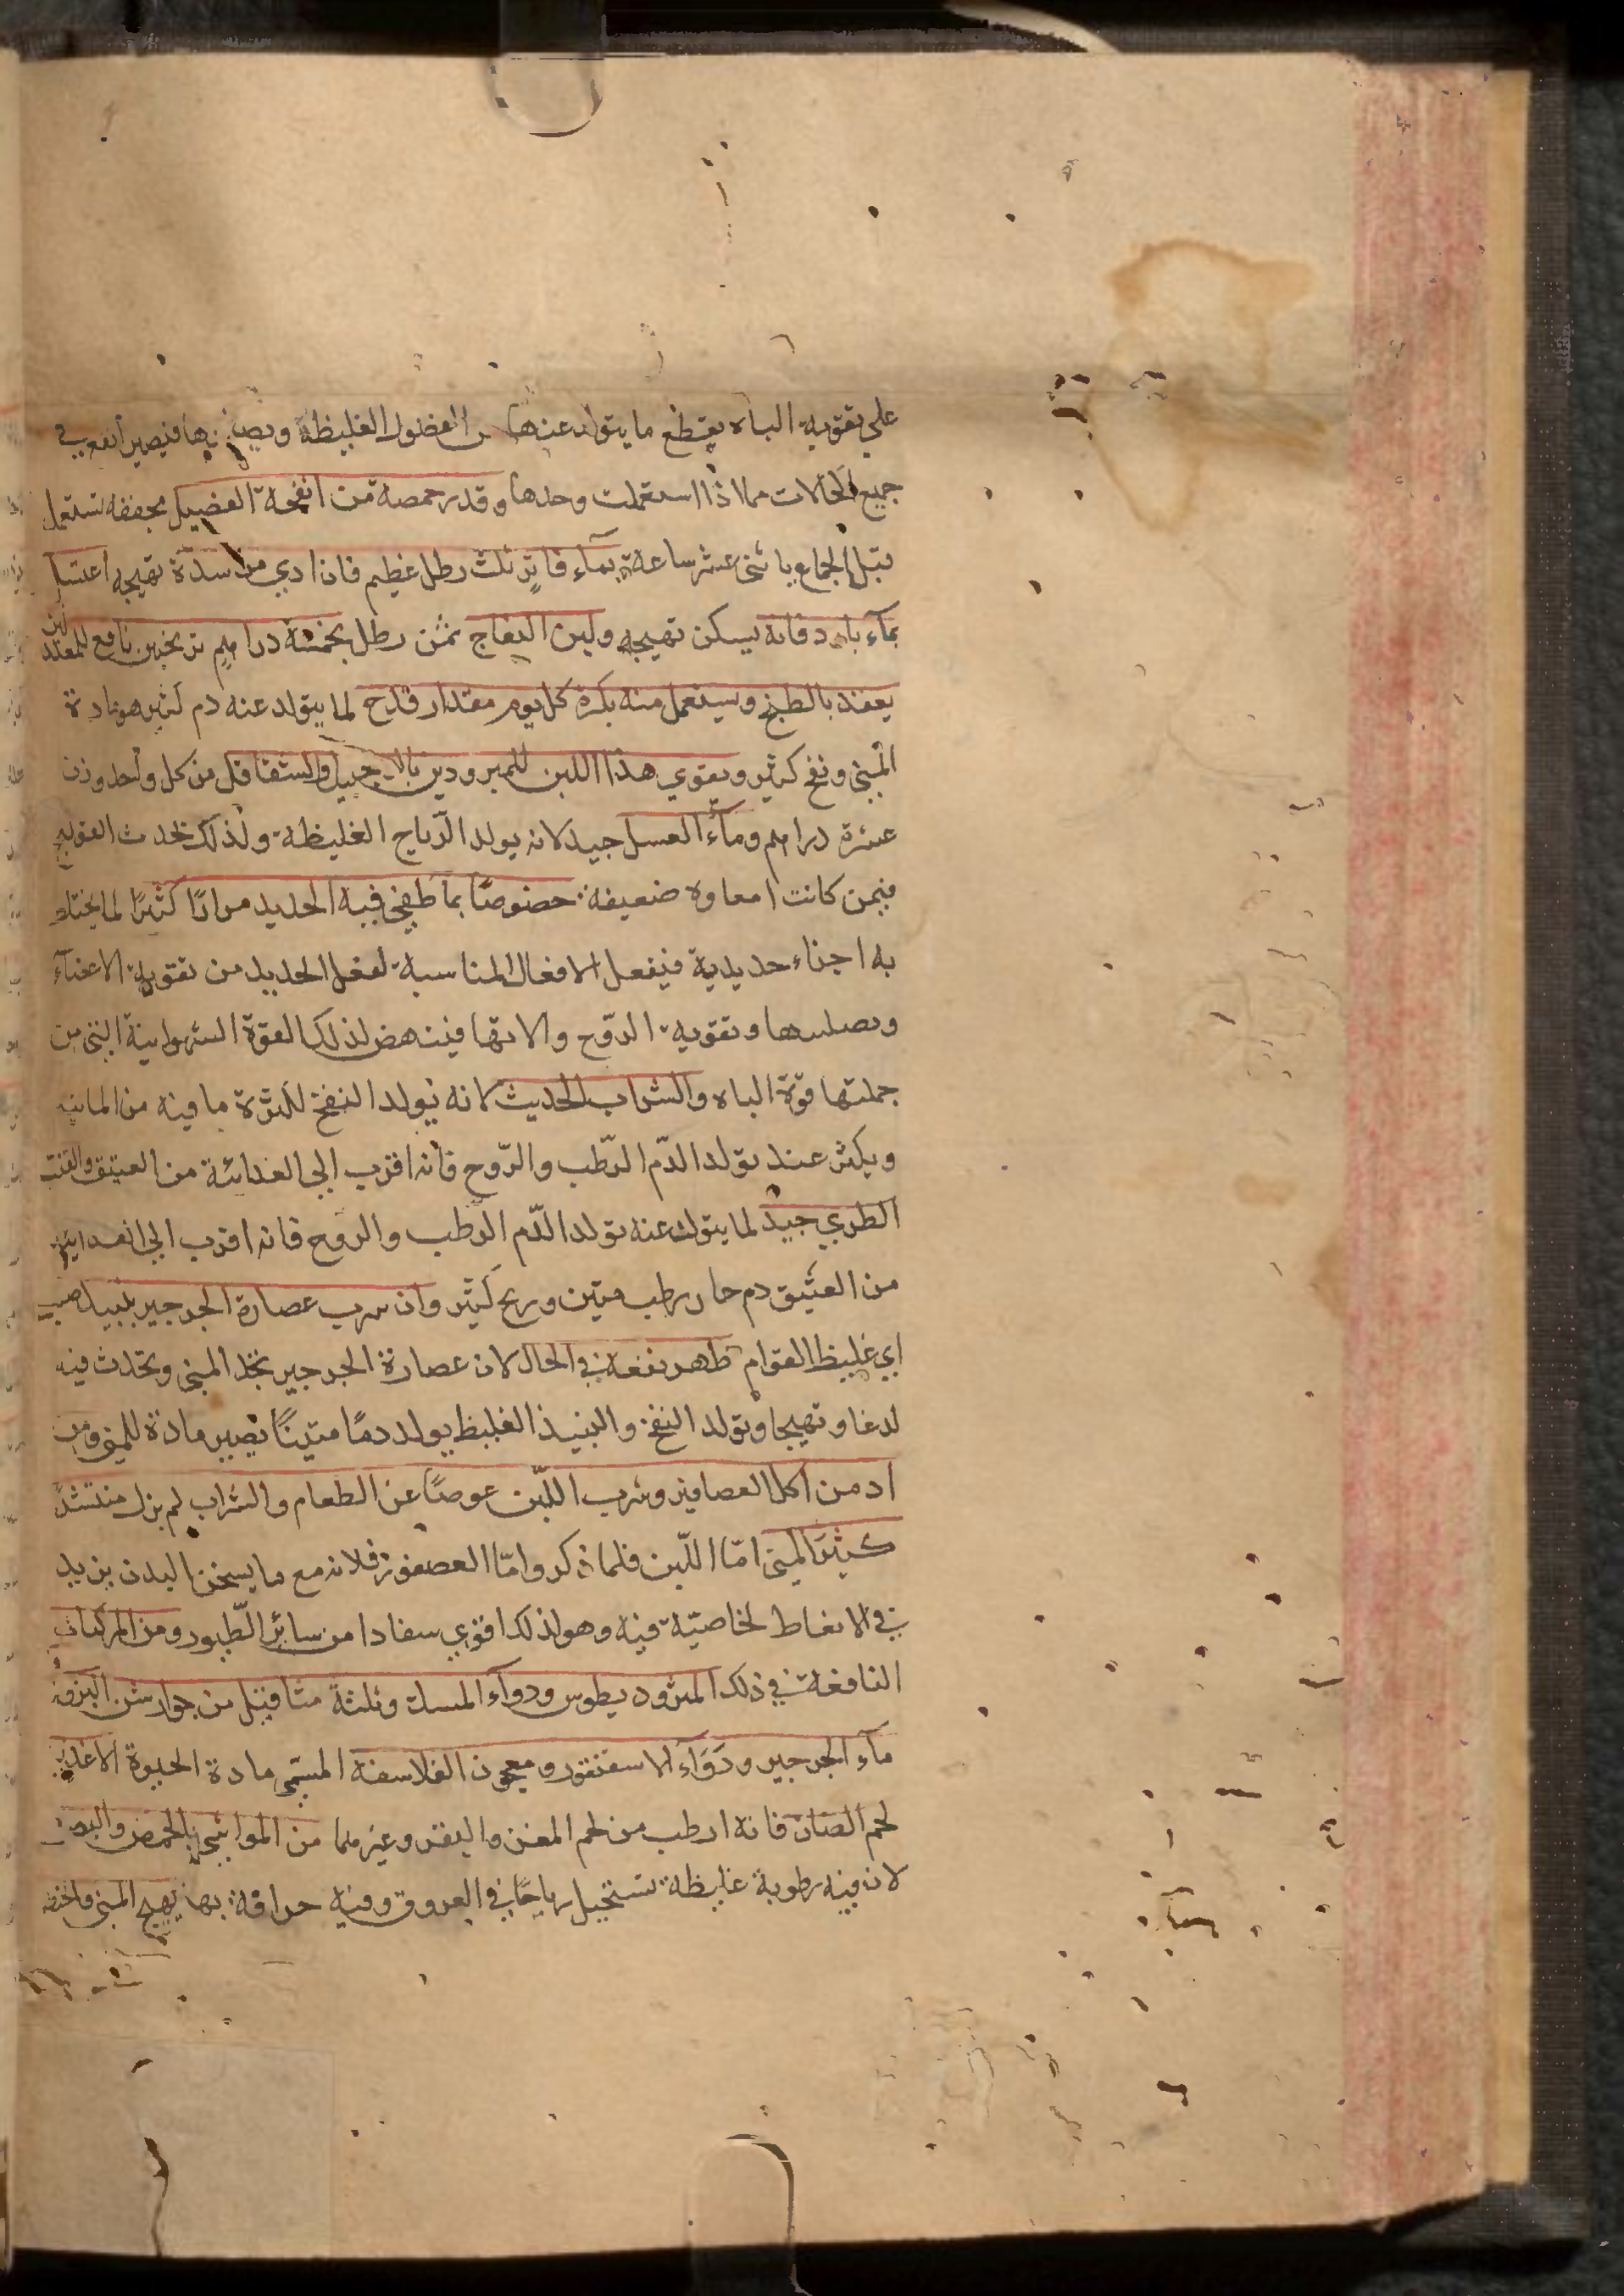 على تقوية الباه يقطع ما يتولد عنها من الفضول الغليظة فيصير أنفع في
جميع الحالات مما اذا استعملت وحدها وقدر حمصة من انفحة الفصيل مجففة تستعمل
قبل الجماع باثنى عشر ساعة بمآء فاتر ثلث رطل عظيم فان ادي من شدة تهيجه اغتسل
بمآء بارد فانه يسكن تهيجه ولبن النعاج ثمن رطل بخمسة دراهم ترنجبين نافع للمعتدلين
يعقد بالطبخ ويستعمل منه بكرة كل يوم مقدار قدح لما يتولد عنه دم كثير هو مادة
المنى ونفخ كثير ويقوي هذا اللبن للمبرودين والشقاقل من كل واحد وزن
عشرة دراهم ومآء العسل جيد لانه يولد الرياح الغليظة ولذلك يحدث القولنج
فيمن كانت امعاوه ضعيفة خصوصا بما طفي فيه الحديد مرارا كثيرا لما يختلط
به اجزاء حديدية فيفعل الافعال المناسبة لفعل الحديد من تقوية الاعضآء
وتصليبها وتقوية الروح والاتها فينهض لذلك القوة الشهوانية التى من
جملتها قوة الباه والشراب الحديث لانه يولد النفخ لكثرة ما فيه من المائيه
ويكثر عند تولد الدم الرطب والروح فانه اقرب الى الغدائية من العتيق والعنب
الطري جيد لما يتولد عنه تولد الدم الرطب والروح فانه اقرب الى الغدائية
من العتيق دم حار رطب متين وريح كثير وان شرب عصارة الجرجير بنبيد صلب
اي غليظ القوام ظهر نفعه في الحال لان عصارة الجرجير تحد المنى وتحدث فيه
لدغا وتهيجا وتولد النفخ والنبيذ الغليظ يولد دما متينا تصير مادة للمنى ومن
ادمن اكل العصافير وشرب اللبن عوضا عن الطعام والشراب لم يزل منتشدا
كثير المنى اما اللبن فلما ذكر واما العصفور فلانه مع ما يسخن البدن يزيد
في الانعاظ لخاصية فيه وهو لذلك اقوي سفادا من سائر الطيور ومن المركبات
النافعة في ذلك المثروديطوس ودوآء المسك وثلثة مثاقيل من جوارشن البزور
مآء الجرجير ودوآء الاسقنقور ومعجون الفلاسفه المسمى مادة الحيوة الاغذية
لحم الضان فانه ارطب من لحم المعز والبقر وغيرهما من المواشى بالحمص والبصل
لان فيه رطوبة غليظة تستحيل رياحا في العروق وفيه حرافة بها يهيج المنى